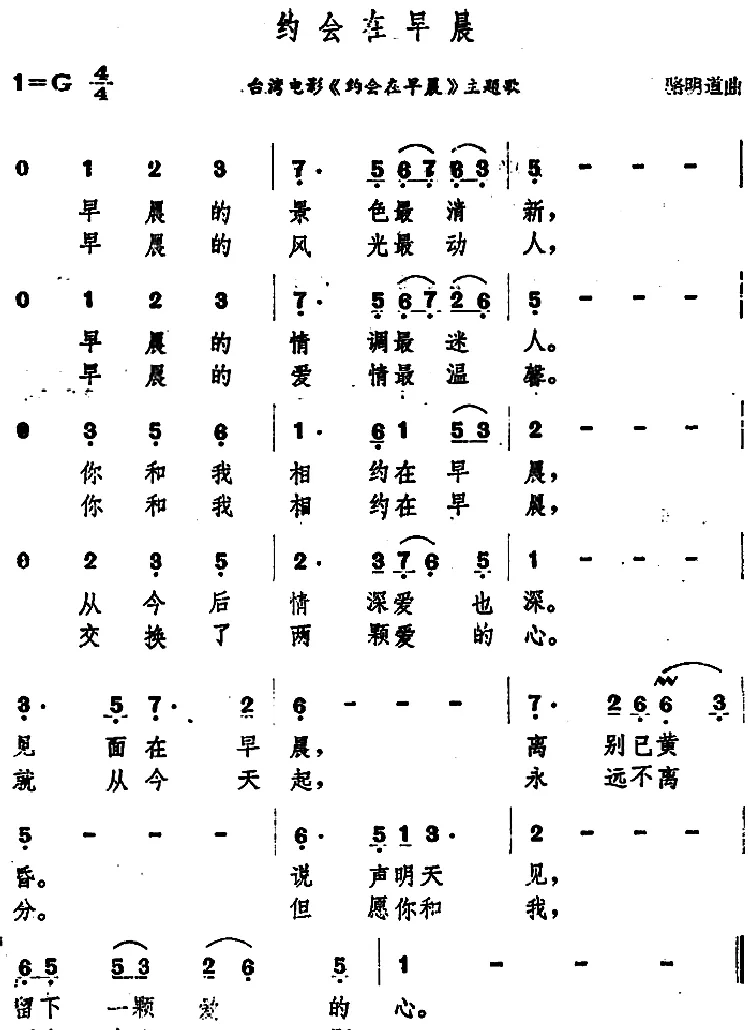 约会在早晨
1=G 4/4 台湾电影《约会在早晨》主题歌 骆明道曲
0 1 2 3 | 7· 5 6 7 6 3 | 5 - - -
早晨的景色最清新,
早晨的风光最动人,
0 1 2 3 | 7· 5 6 7 2 6 | 5 - - - |
早晨的情调最迷人。
早晨的爱情最温馨。
0 3 5 6 | 1· 6 1 5 3 | 2 - - - |
你和我相约在早晨,
你和我相约在早晨,
0 2 3 5 | 2· 3 7 6 5 | 1 - - - |
从今后情深爱也深。
交换了两颗爱的心。
3· 5 7· 2 | 6 - - - | 7· 2 6 6 3 |
见面在早晨,离别已黄
就从今天起,永远不离
5 - - - | 6· 5 1 3· | 2 - - - |
昏。说声明天见,
分。但愿你和我,
6 5 5 3 2 6 5 | 1 - - - ‖
留下一颗爱的心。